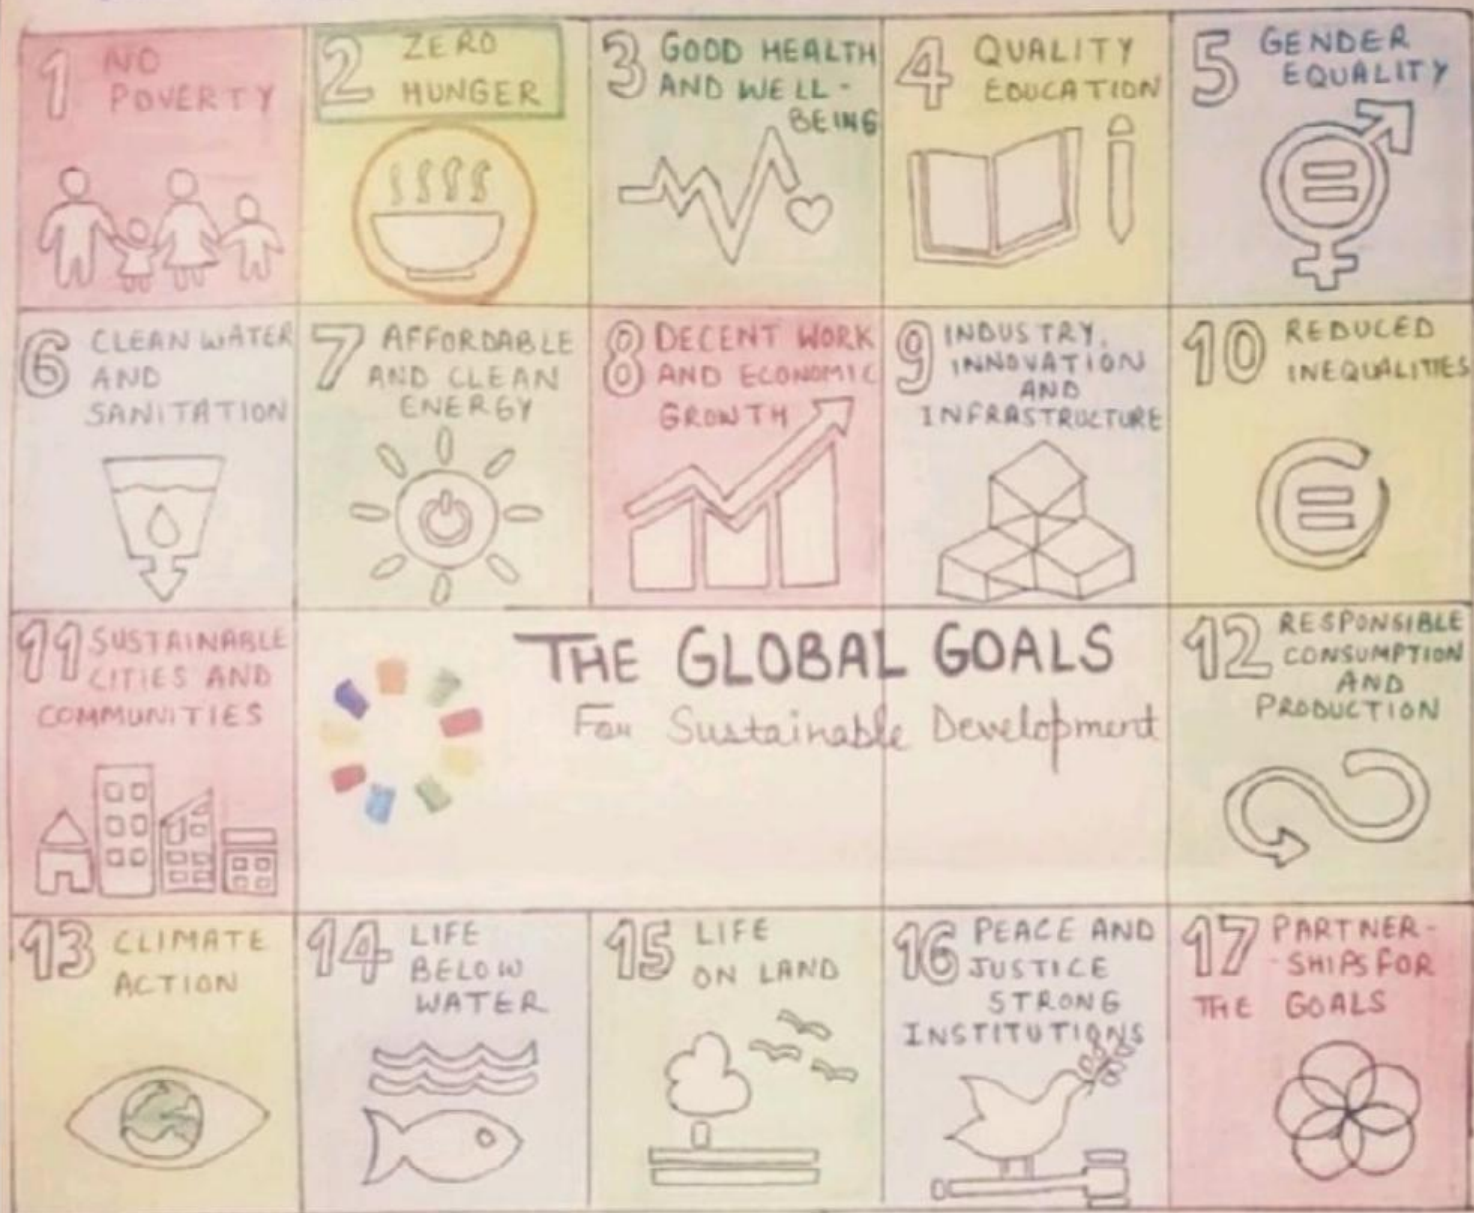 1 NO
POVERTY
2 ZERO
HUNGER
3 GOOD HEALTH
AND WELL-
BEING
4 QUALITY
EDUCATION
5 GENDER
EQUALITY
6 CLEAN WATER
AND
SANITATION
7 AFFORDABLE
AND CLEAN
ENERGY
8 DECENT WORK
AND ECONOMIC
GROWTH
9 INDUSTRY,
INNOVATION
AND
INFRASTRUCTURE
10 REDUCED
INEQUALITIES
11 SUSTAINABLE
CITIES AND
COMMUNITIES
THE GLOBAL GOALS
For Sustainable Development
12 RESPONSIBLE
CONSUMPTION
AND
PRODUCTION
13 CLIMATE
ACTION
14 LIFE
BELOW
WATER
15 LIFE
ON LAND
16 PEACE AND
JUSTICE
STRONG
INSTITUTIONS
17 PARTNER-
-SHIPS FOR
THE GOALS